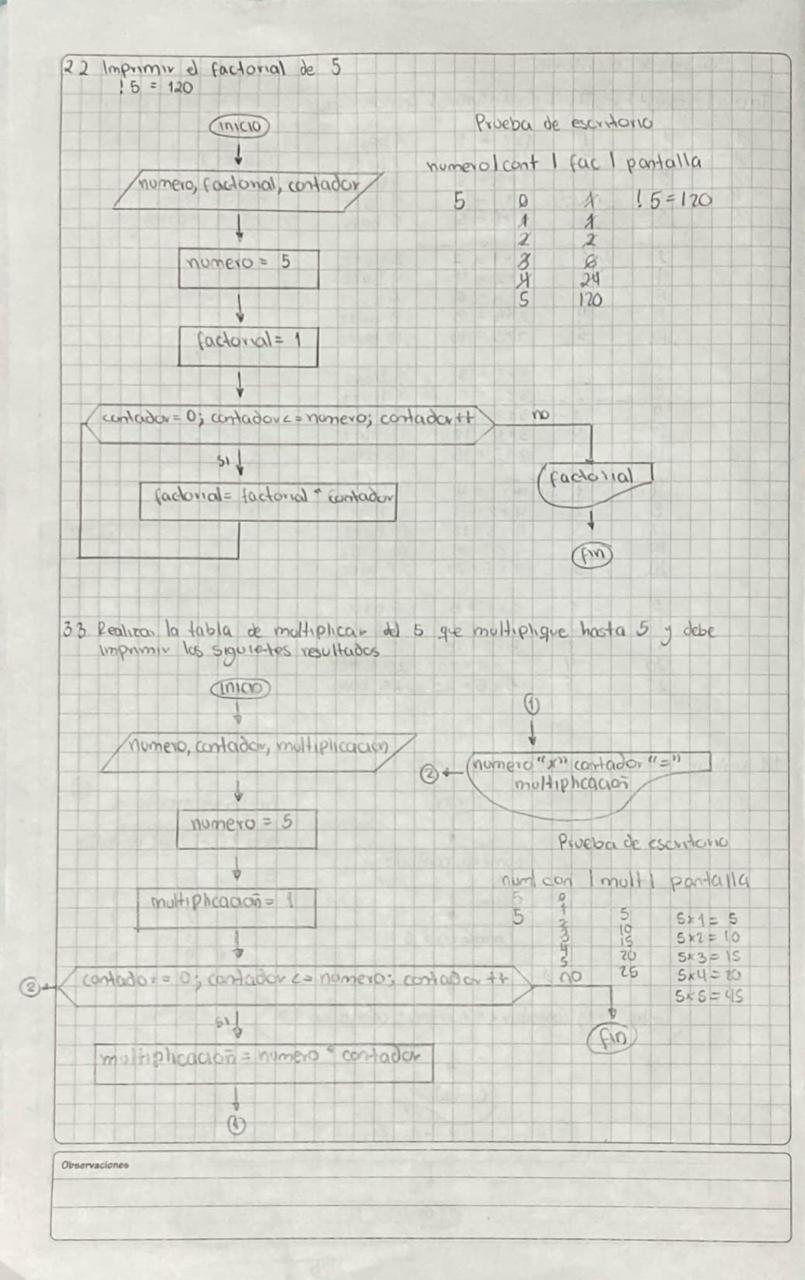 22 Imprimir el factorial de 5
! 5 = 120
inicio
numero, factorial, contador
numero = 5
factorial = 1
contador = 0; contador <= numero; contador ++
no
si
factorial = factorial * contador
factorial
fin
Prueba de escritorio
numero | cont | fac | pantalla
5 0 1 ! 5 = 120
1 1
2 2
3 6
4 24
5 120
33 Realizar la tabla de multiplicar del 5 que multiplique hasta 5 y debe
imprimir los siguietes resultados
inicio
numero, contador, multiplicacion
numero = 5
multiplicacion = 1
2
contador = 0; contador <= numero; contador ++
no
si
multiplicacion = numero * contador
1
fin
1
numero "x" contador "="
multiplicacion
2
Prueba de escritorio
num | con | mult | pantalla
5 0
5 1 5 5x1 = 5
2 10 5x2 = 10
3 15 5x3 = 15
4 20 5x4 = 20
5 25 5x5 = 45
Observaciones